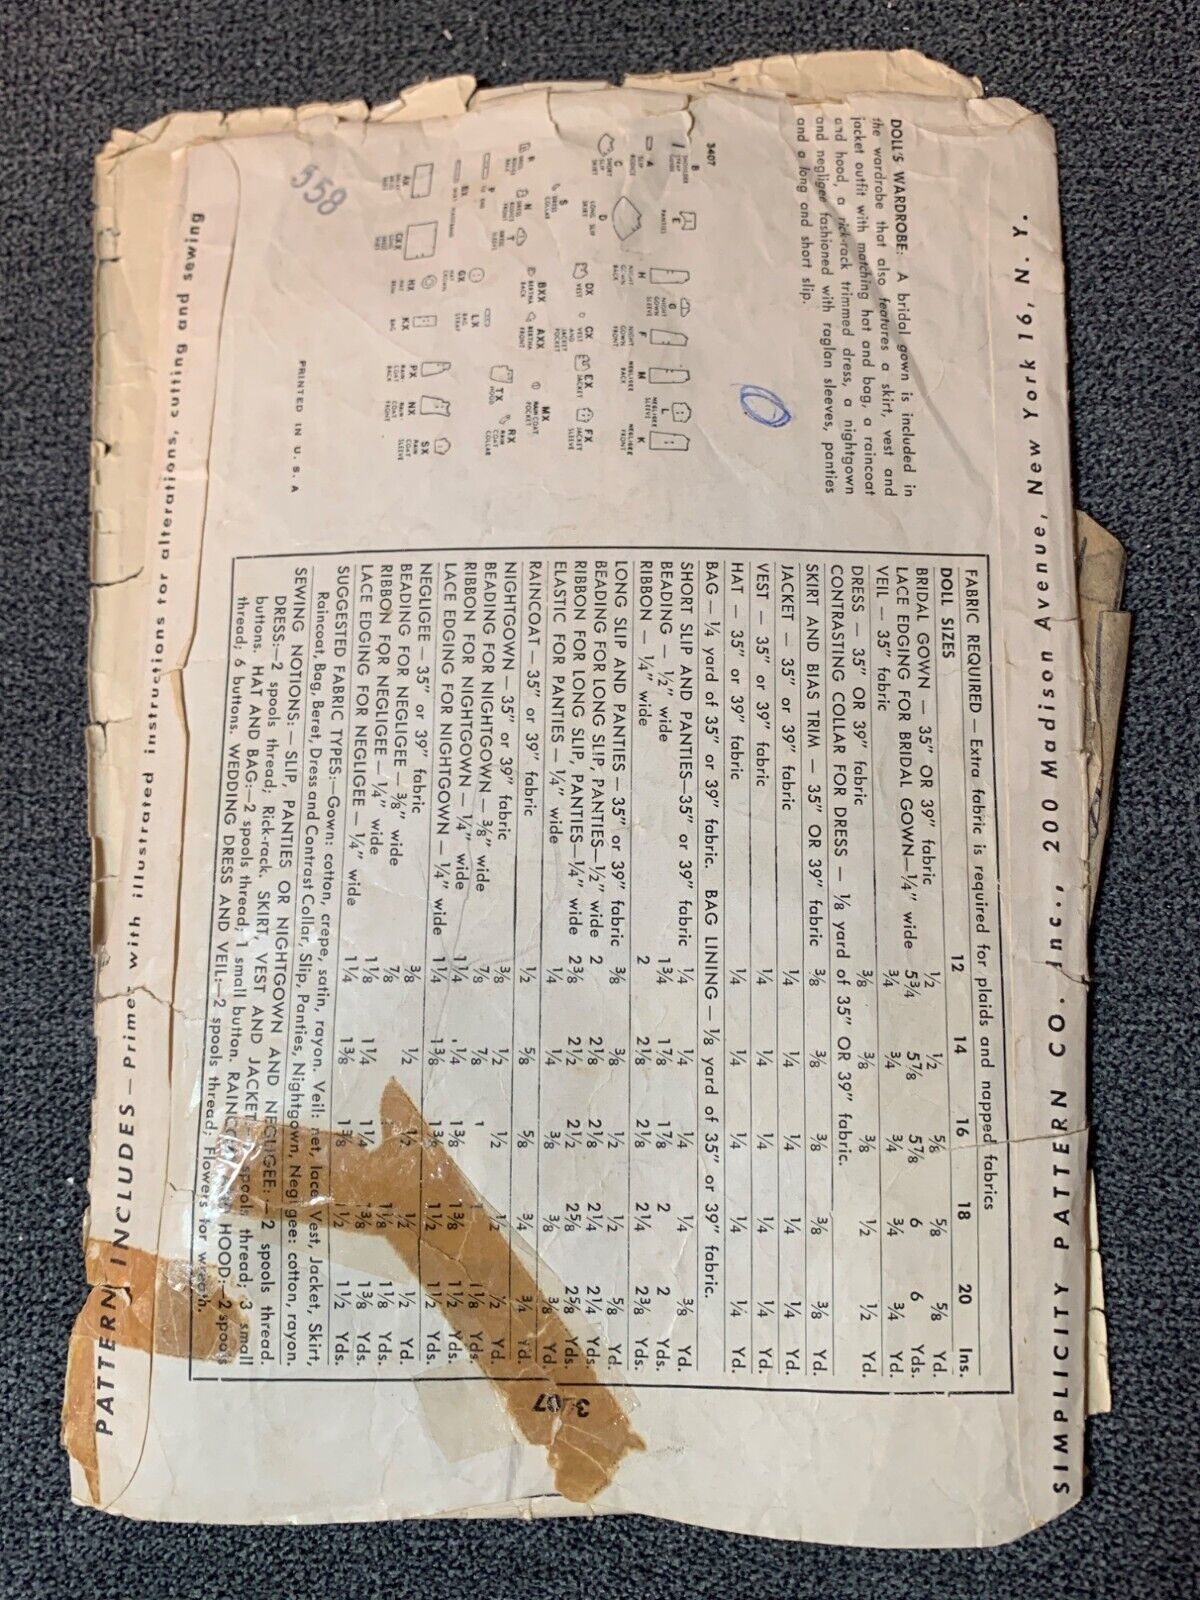 SIMPLICITY PATTERN CO. Inc., 200 Madison Avenue, New York 16, N. Y.
DOLL'S WARDROBE: A bridal gown is included in
the wardrobe that also features a skirt, vest and
jacket outfit with matching hat and bag, a raincoat
and hood, a rick-rack trimmed dress, a nightgown
and negligee fashioned with raglan sleeves, panties
and a long and short slip.
3407
B SHOULDER STRAP GUIDE
A SLIP BODICE
C SHORT SLIP SKIRT
E PANTIES
D LONG SLIP SKIRT
H NIGHT GOWN BACK
G NIGHT GOWN SLEEVE
F NIGHT GOWN FRONT
M NEGLIGEE BACK
L NEGLIGEE SLEEVE
K NEGLIGEE FRONT
R
S DRESS COLLAR
N DRESS BODICE FRONT
P
T DRESS SLEEVE
DX VEST
CX VEST AND JACKET POCKET
EX JACKET
FX JACKET SLEEVE
BXX BERTHA BACK
AXX BERTHA FRONT
MX RAIN COAT POCKET
BX SKIRT
GX HAT CROWN
LX BAG STRAP
TX HOOD
RX RAIN COAT COLLAR
AX
CXX
HX HAT BRIM
KX BAG
PX RAIN COAT BACK
NX RAIN COAT FRONT
SX RAIN COAT SLEEVE
558
PRINTED IN U. S. A
FABRIC REQUIRED — Extra fabric is required for plaids and napped fabrics
DOLL SIZES 12 14 16 18 20 Ins.
BRIDAL GOWN — 35" OR 39" fabric 1/2 1/2 5/8 5/8 5/8 Yd.
LACE EDGING FOR BRIDAL GOWN—1/4" wide 5 3/4 5 7/8 5 7/8 6 6 Yds.
VEIL — 35" fabric 3/4 3/4 3/4 3/4 3/4 Yd.
DRESS — 35" OR 39" fabric 3/8 3/8 3/8 1/2 1/2 Yd.
CONTRASTING COLLAR FOR DRESS — 1/8 yard of 35" OR 39" fabric.
SKIRT AND BIAS TRIM — 35" OR 39" fabric 3/8 3/8 3/8 3/8 3/8 Yd.
JACKET — 35" or 39" fabric 1/4 1/4 1/4 1/4 1/4 Yd.
VEST — 35" or 39" fabric 1/4 1/4 1/4 1/4 1/4 Yd.
HAT — 35" or 39" fabric 1/4 1/4 1/4 1/4 1/4 Yd.
BAG — 1/4 yard of 35" or 39" fabric. BAG LINING — 1/8 yard of 35" or 39" fabric.
SHORT SLIP AND PANTIES—35" or 39" fabric 1/4 1/4 1/4 1/4 3/8 Yd.
BEADING — 1/2" wide 1 3/4 1 7/8 1 7/8 2 2 Yds.
RIBBON — 1/4" wide 2 2 1/8 2 1/8 2 1/4 2 3/8 Yds.
LONG SLIP AND PANTIES — 35" or 39" fabric 3/8 3/8 1/2 1/2 5/8 Yd.
BEADING FOR LONG SLIP, PANTIES—1/2" wide 2 2 1/8 2 1/8 2 1/4 2 1/4 Yds.
RIBBON FOR LONG SLIP, PANTIES—1/4" wide 2 3/8 2 1/2 2 1/2 2 5/8 2 5/8 Yds.
ELASTIC FOR PANTIES — 1/4" wide 1/4 1/4 3/8 3/8 3/8 Yd.
RAINCOAT — 35" or 39" fabric 1/2 5/8 5/8 3/4 3/4 Yd.
NIGHTGOWN — 35" or 39" fabric 3/8 1/2 1/2 1/2 1/2 Yd.
BEADING FOR NIGHTGOWN — 3/8" wide 7/8 7/8 1 1 1 1/8 Yds.
RIBBON FOR NIGHTGOWN — 1/4" wide 1 1/4 1/4 1 3/8 1 3/8 1 1/2 Yds.
LACE EDGING FOR NIGHTGOWN — 1/4" wide 1 1/4 1 3/8 1 3/8 1 1/2 1 1/2 Yds.
NEGLIGEE — 35" or 39" fabric 3/8 1/2 1/2 1/2 1/2 Yd.
BEADING FOR NEGLIGEE — 3/8" wide 7/8 1 1/8 1 1/8 Yds.
RIBBON FOR NEGLIGEE — 1/4" wide 1 1/8 1 1/4 1 1/4 1 3/8 1 3/8 Yds.
LACE EDGING FOR NEGLIGEE — 1/4" wide 1 1/4 1 3/8 1 3/8 1 1/2 1 1/2 Yds.
SUGGESTED FABRIC TYPES:—Gown: cotton, crepe, satin, rayon. Veil: net, lace. Vest, Jacket, Skirt,
Raincoat, Bag, Beret, Dress and Contrast Collar, Slip, Panties, Nightgown, Negligee: cotton, rayon.
SEWING NOTIONS:— SLIP, PANTIES OR NIGHTGOWN AND NEGLIGEE:—2 spools thread.
DRESS:—2 spools thread; Rick-rack. SKIRT, VEST AND JACKET spools thread; 3 small
buttons. HAT AND BAG:—2 spools thread; 1 small button. RAINCOAT HOOD:—2 spools
thread; 6 buttons. WEDDING DRESS AND VEIL:—2 spools thread; Flowers for wreath.
3407
PATTERN INCLUDES — Primer with illustrated instructions for alterations, cutting, and sewing